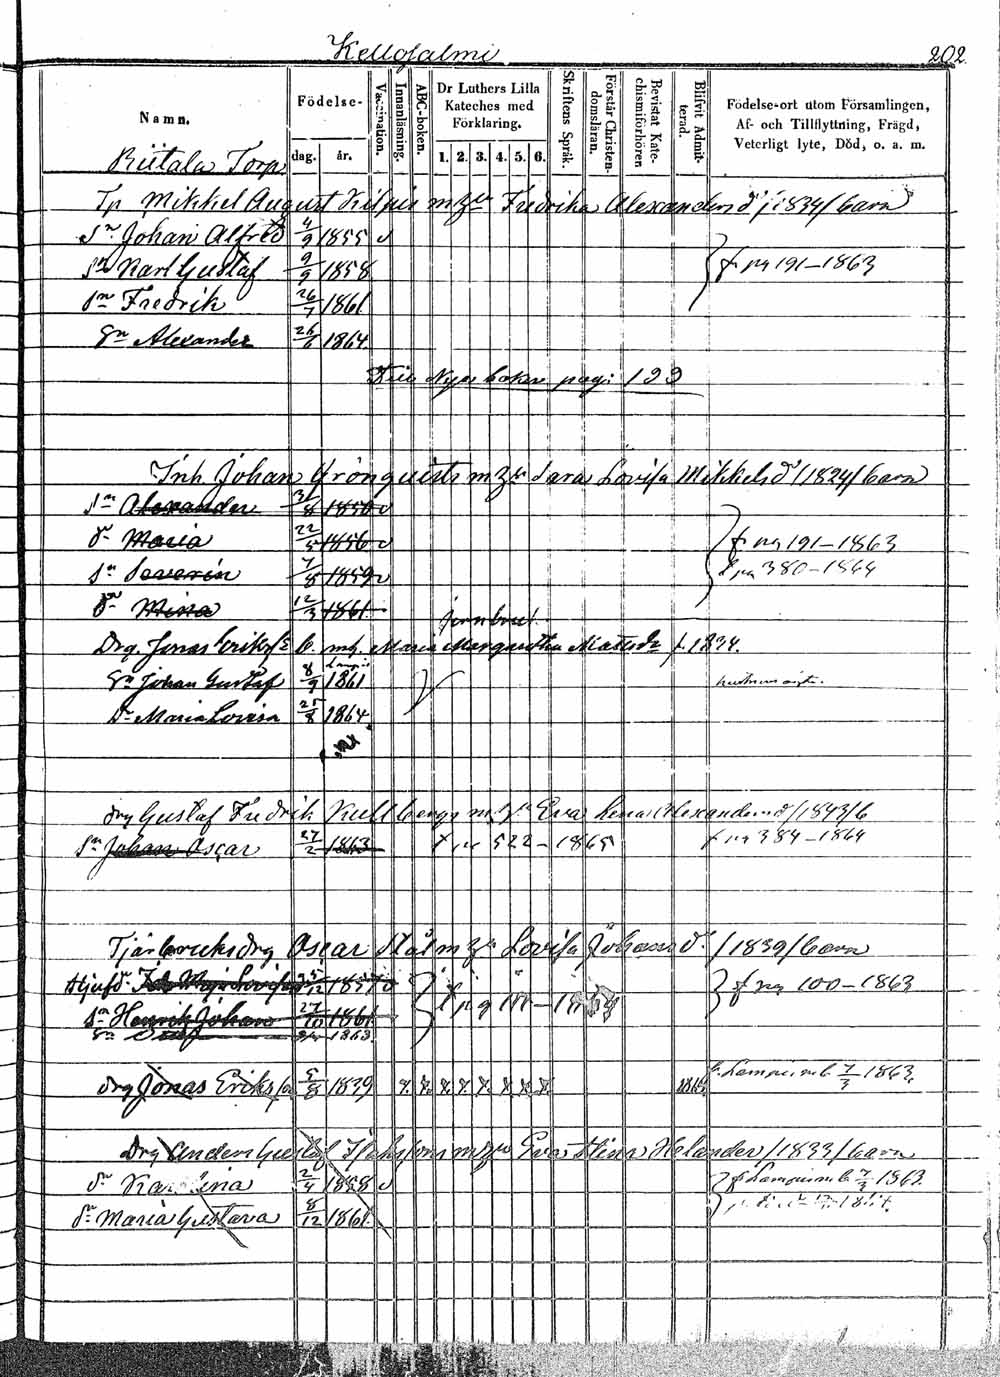 Kellosalmi 202.
Namn.
Födelse-
dag. år.
Vaccination.
Innanläsning.
ABC-boken.
Dr Luthers Lilla Kateches med Förklaring.
1. 2. 3. 4. 5. 6.
Skriftens Språk.
Förstår Christendomsläran.
Bevistat Katechismiförhören
Blifvit Admitterad.
Födelse-ort utom Församlingen,
Af- och Tillflyttning, Frägd,
Veterligt lyte, Död, o. a. m.
Riitala Torp
Tp Mikkel August m h:u Fredrika Alexandersd:r /1834/ barn
Sn Johan Alfred 4/9 1855 v
Sn Karl Gustaf 9/9 1858 f. pag 191–1863
Sn Fredrik 26/7 1861
Sn Alexander 26/6 1864
Nya boken pag: 199
Inh. Johan Grönquists m h:u Sara Lovisa Mikkelsd:r /1824/ barn
Sn Alexander 31/8 1850 v
Dr Maria 22/5 1856 v f. pag 191–1863
Sn Severin 7/8 1859 v f. pag 380–1864
Dr Mina 12/3 1861
Drg. Jonas Eriks: mh. Maria Margaretha Mattsdr f. 1834.
Sn Johan Gustaf 8/9 1861
Dr Maria Lovisa 25/8 1864
drg Gustaf Fredrik Kullbergs m h:u Eva Lena Alexandersd /1843/ b
Sn Johan Oscar 27/2 1863 f. pag 522–1865 f. pag 384–1864
Tjärbruksdrg Oscar Stål m h:u Lovisa Johansd:r /1839/ barn
Styfd. Maja Lovisa 1857 v f. pag 100–1863
Sn Henrik Johan 27/10 1861
Sn 1863
drg Jonas Eriksson 5/8 1839 f. Lampis m.b. 7/3 1863
Drg Anders Gustaf m h:u Eva Stina Helander /1833/ barn
Dr Karolina 2/4 1858 v f. Lampis m.b. 7/3 1863.
Dr Maria Gustava 8/12 1861